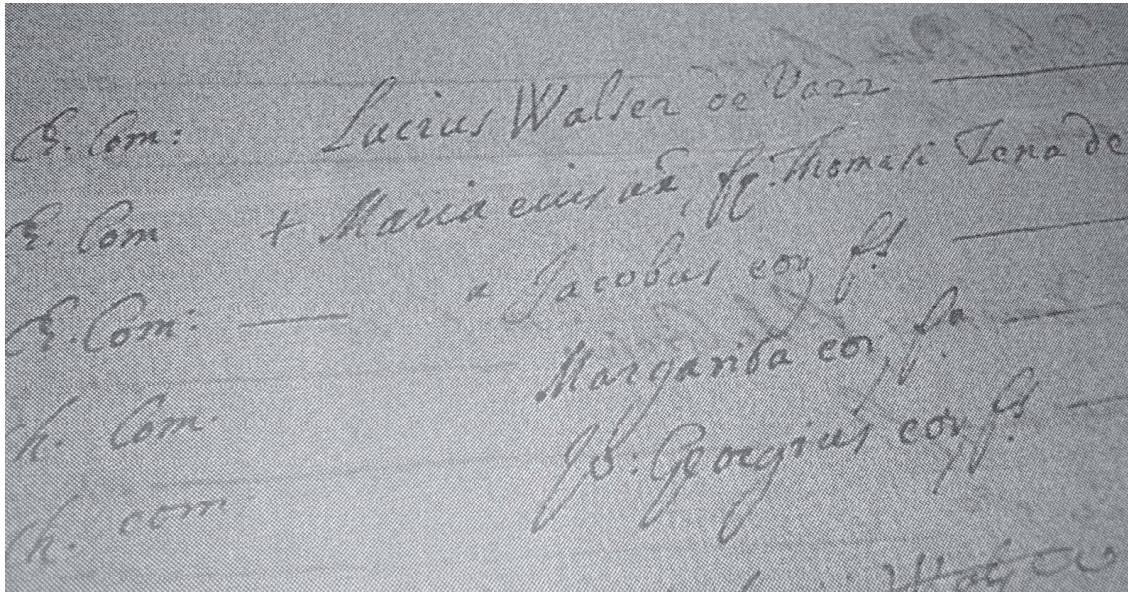 C. Com: Lucius Walser de Vazz
C. Com + Maria eius ux, fq: Thomasi Tena de
C. Com: Jacobus eor, fs
ch. Com. Margarita eor, fa
ch. com Jo: Georgius eor, fs